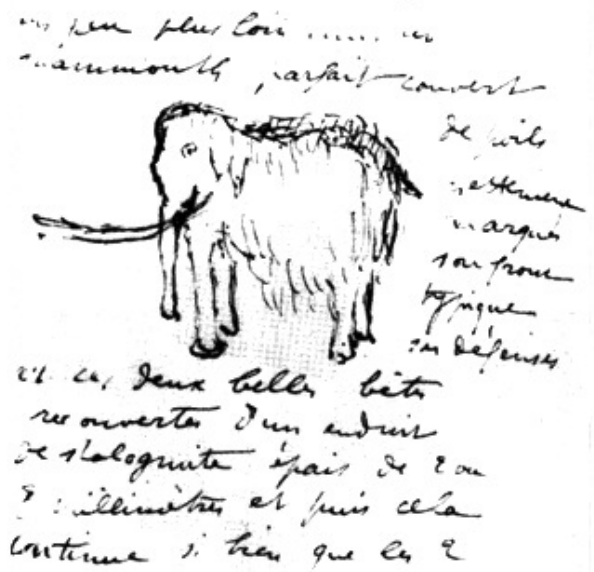 un peu plus loin ...... un
mammouth parfait couvert
de poils
nettement
marqués
son front
typique
ses défenses
et ces deux belles bêtes
recouvertes d'un enduit
de stalagmite épais de 2 ou
3 millimètres et puis cela
continue si bien que les 2